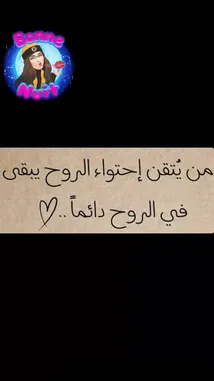 Bonne
Nuit
من يُتقن إحتواء الروح يبقى
في الروح دائماً ..♡